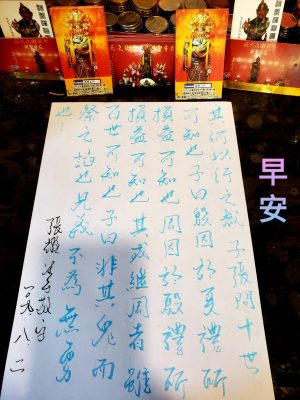 其何以行之哉子張問十世
可知也子曰殷因於夏禮所
損益可知也周因於殷禮所
損益可知也其或繼周者雖
百世可知也子曰非其鬼而
祭之諂也見義不為無勇
也
張
八、二
早安